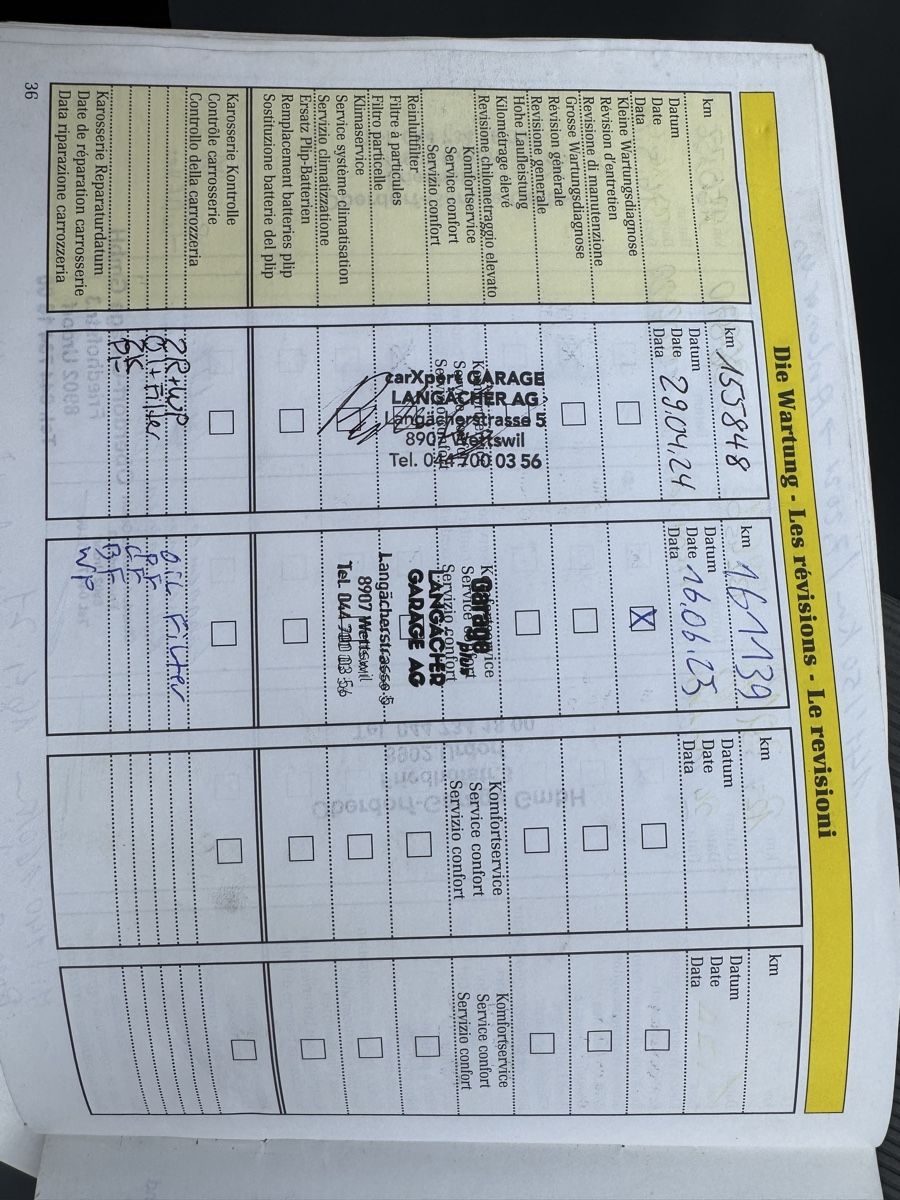 Die Wartung - Les révisions - Le revisioni
km
Datum
Date
Data
Kleine Wartungsdiagnose
Révision d'entretien
Revisione di manutenzione
Grosse Wartungsdiagnose
Révision générale
Revisione generale
Hohe Laufleistung
Kilométrage élevé
Revisione chilometraggio elevato
Komfortservice
Service confort
Servizio confort
Reinluftfilter
Filtre à particules
Filtro particelle
Klimaservice
Service système climatisation
Servizio climatizzatione
Ersatz Plip-Batterien
Remplacement batteries plip
Sostituzione batterie del plip
Karosserie Kontrolle
Contrôle carrosserie
Controllo della carrozzeria
Karosserie Reparaturdatum
Date de réparation carrosserie
Data riparazione carrozzeria
36
km 155848
Datum
Date 29.04.24
Data
carXpert GARAGE
LANGÄCHER AG
Langächerstrasse 5
8907 Wettswil
Tel. 044 700 03 56
ZR+WP
Öl+Filter
ZK
km 161139
Datum
Date 16.06.25
Data
X
Garage
plus
LANGÄCHER
GARAGE AG
Langächerstrasse 5
8907 Wettswil
Tel. 044 700 03 56
Öil Filter
P.F
B.F
WP
km
Datum
Date
Data
Komfortservice
Service confort
Servizio confort
km
Datum
Date
Data
Komfortservice
Service confort
Servizio confort